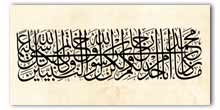 ما كان محمد أبا أحد من رجالكم ولكن رسول الله وخاتم النبيين